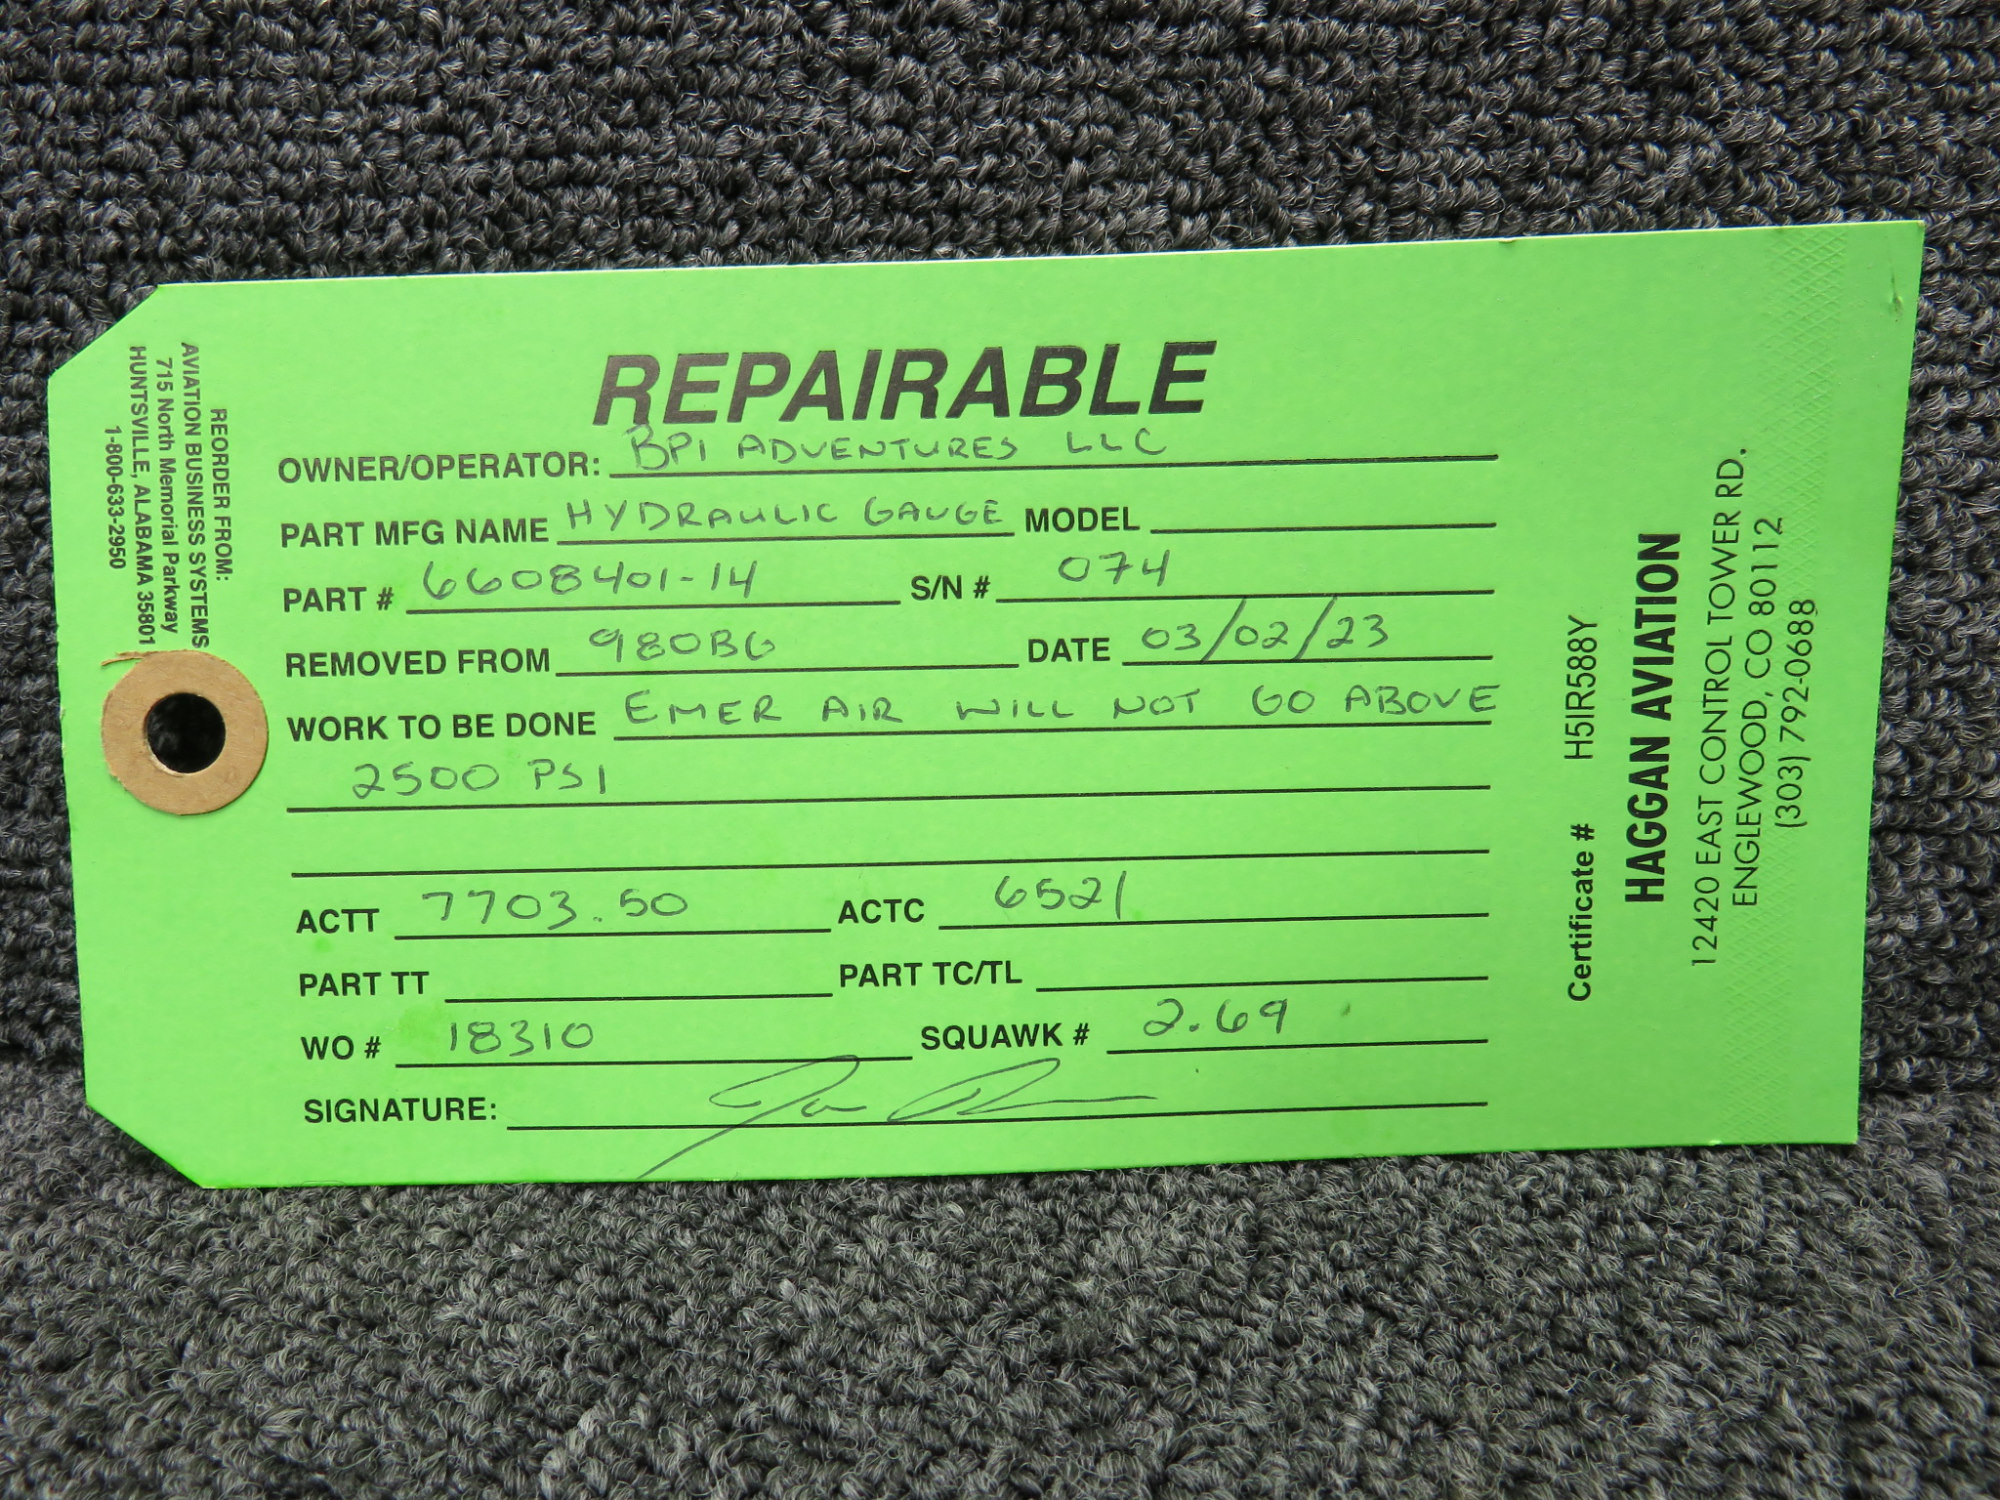 REPAIRABLE
OWNER/OPERATOR: BPI ADVENTURES LLC
PART MFG NAME HYDRAULIC GAUGE MODEL
PART # 6608401-14 S/N # 074
REMOVED FROM 980BG DATE 03/02/23
WORK TO BE DONE EMER AIR WILL NOT GO ABOVE
2500 PSI
ACTT 7703.50 ACTC 6521
PART TT PART TC/TL
WO # 18310 SQUAWK # 2.69
SIGNATURE:
REORDER FROM:
AVIATION BUSINESS SYSTEMS
715 North Memorial Parkway
HUNTSVILLE, ALABAMA 35801
1-800-633-2950
Certificate # H5IR588Y
HAGGAN AVIATION
12420 EAST CONTROL TOWER RD.
ENGLEWOOD, CO 80112
(303) 792-0688